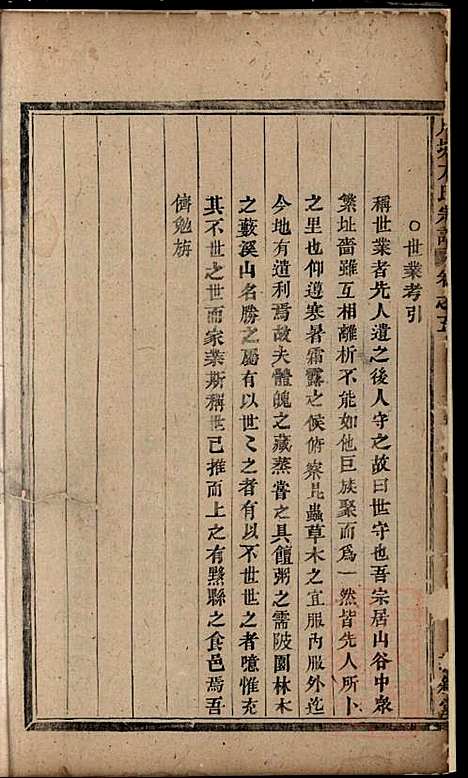 ○世業考引
稱世業者先人遺之後人守之故曰世守也吾宗居山谷中衆
繁址嗇雖互相離析不能如他巨族聚而爲一然皆先人所卜
之里也仰遵寒暑霜露之候俯察昆蟲草木之宜服內服外迄
今地有遺利焉故夫體魄之藏蒸嘗之具饘粥之需陂園林木
之藪溪山名勝之屬有以世〻之者有以不世世之者噫惟充
其不世之世而家業斯稱世已推而上之有黟縣之食邑焉吾
儕勉旃